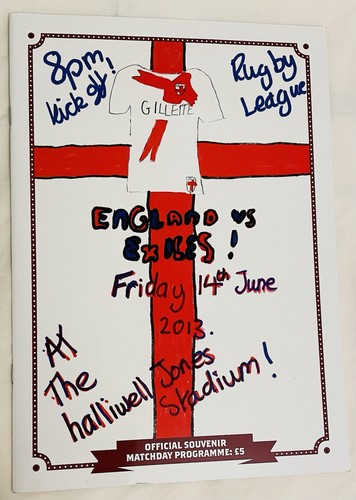 8pm
kick off!
Rugby
League
GILLETTE
ENGLAND vs
EXILES!
Friday 14th June
2013.
AT
The
halliwell Jones
Stadium!
OFFICIAL SOUVENIR
MATCHDAY PROGRAMME: £5